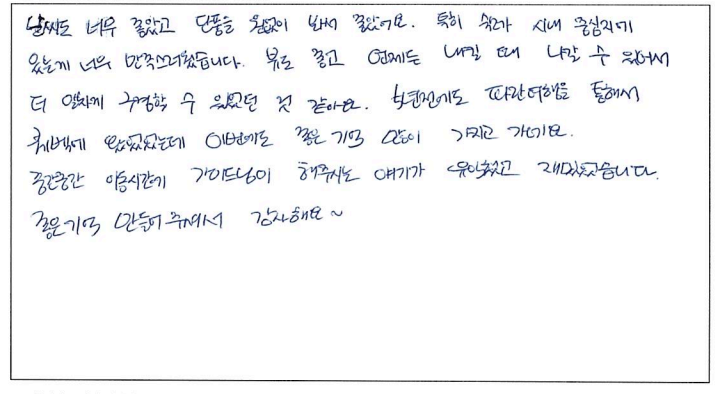 날씨도 너무 좋았고 단풍을 원없이 봐서 좋았어요. 특히 숙소가 시내 중심지에
있는게 너무 만족스러웠습니다. 뷰도 좋고 언제든 내킬 때 나갈 수 있어서
더 알차게 구경할 수 있었던 것 같아요. 년전에도 파란여행을 통해서
퀘벡에 왔었었는데 이번에도 좋은 기억 많이 가지고 가네요.
중간중간 이동시간에 가이드님이 해주시는 얘기가 유익했고 재밌었습니다.
좋은기억 만들어주셔서 감사해요~